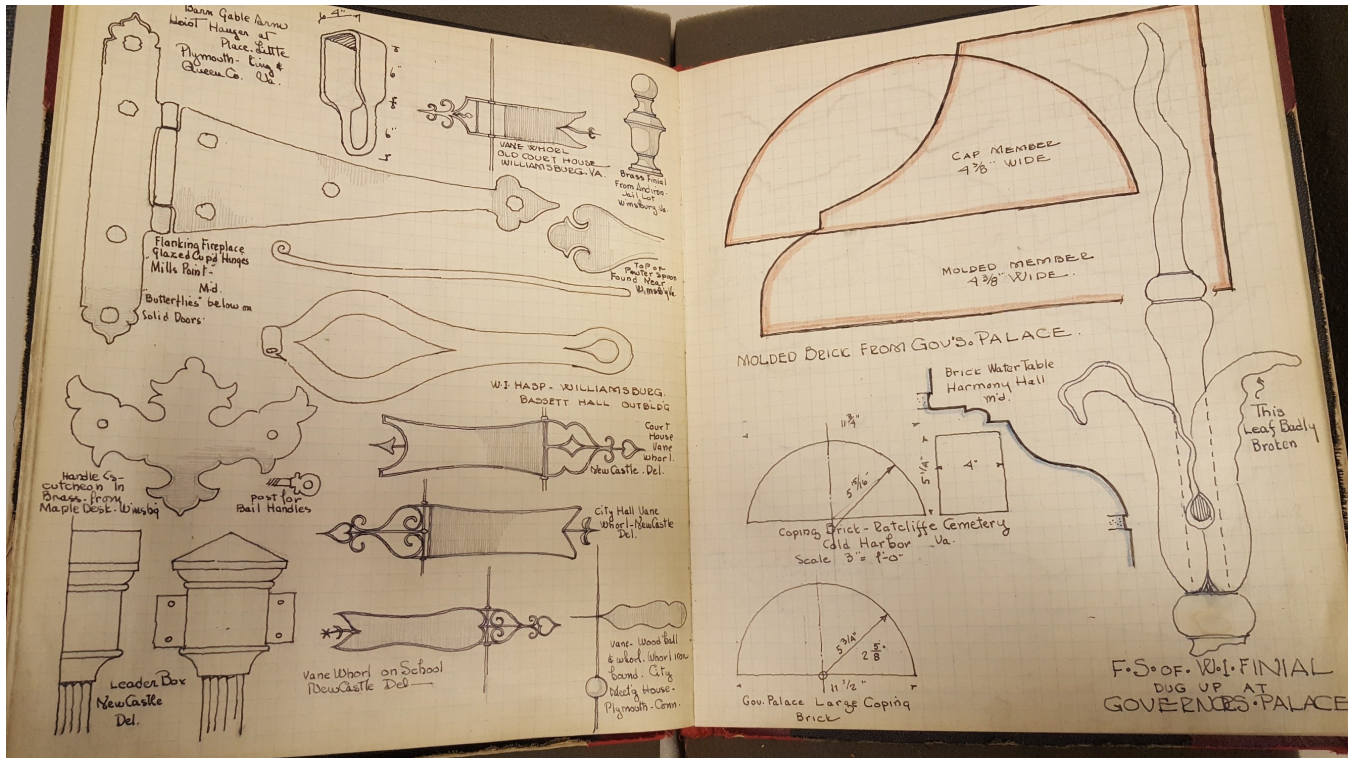 Barn Gable Arm
Hoist Hanger at
Place. Little
Plymouth - King &
Queen Co. Va.
4"
6"
6"
VANE WHORL
OLD COURT HOUSE
WILLIAMSBURG. VA.
Brass Finial
From Andiron-
Jail Lot
Wmsburg Va.
Flanking Fireplace
Glazed Cup'd Hinges
Mills Point-
Md.
"Butterflies" below on
Solid Doors.
Top of
Pewter Spoon
Found Near
Wmsb'g Va.
W.I. HASP - WILLIAMSBURG.
BASSETT HALL OUTBLDG
Court
House
Vane
Whorl.
New Castle. Del.
Handle Es-
cutcheon In
Brass. from
Maple Desk. Wmsbg
post for
Bail Handles
City Hall Vane
Whorl-NewCastle
Del.
Leader Box
NewCastle
Del.
Vane Whorl on School
NewCastle Del
Vane- Wood ball
& whorl. Whorl iron
bound. City
Meet'g House-
Plymouth-Conn.
CAP MEMBER
4 3/8" WIDE
MOLDED MEMBER
4 3/8" WIDE.
MOLDED BRICK FROM GOV'S. PALACE.
Brick Water Table
Harmony Hall
Md.
11 3/4"
5 15/16"
5 1/4"
4"
Coping Brick - Ratcliffe Cemetery
Cold Harbor Va.
Scale 3" = 1'-0"
This
Leaf Badly
Broken
5 3/4"
2 5/8"
11 1/2"
Gov. Palace Large Coping
Brick
F.S. OF. W.I. FINIAL
DUG UP AT
GOVERNORS. PALACE